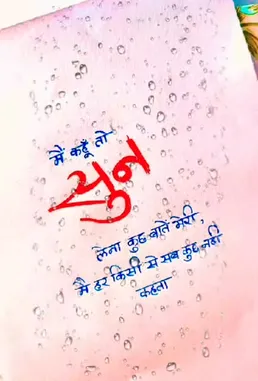 मैं कहूँ तो
सुन
लेना कुछ बातें मेरी,
मैं हर किसी से सब कुछ नहीं
कहता